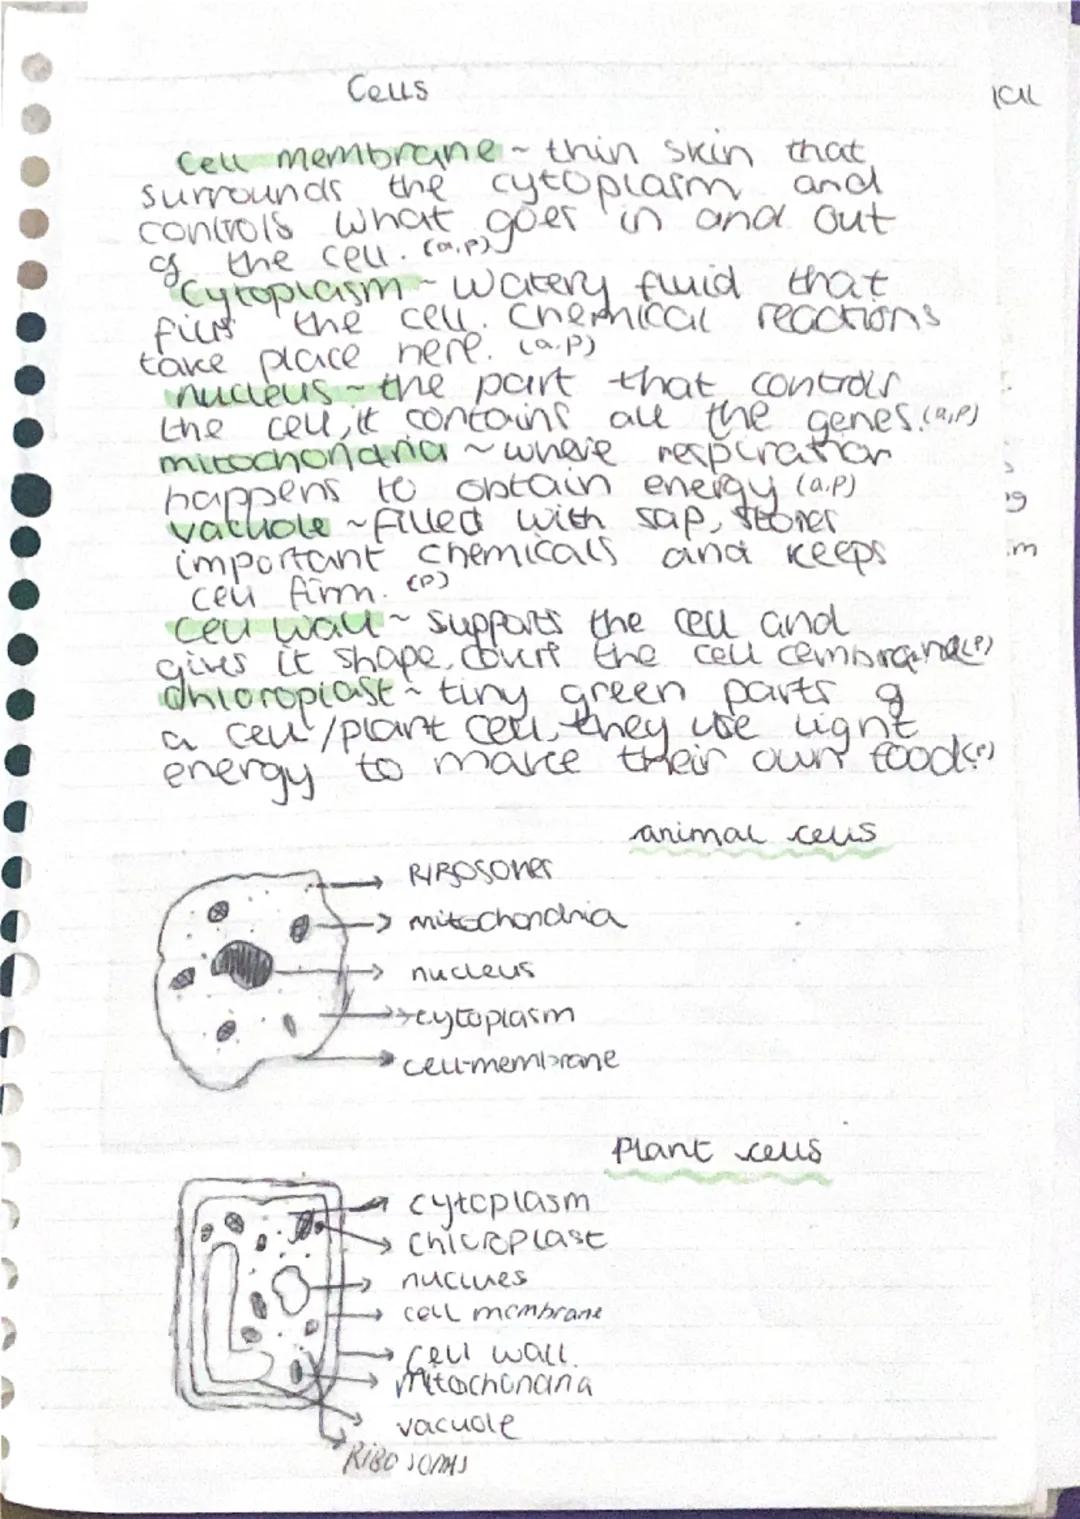 Cells
Cell membrane ~ thin skin that
surrounds the cytoplasm and
controls what goes in and out
of the cell. (a,p)
Cytoplasm ~ watery fluid that
fills the cell. Chemical reactions
take place here. (a.p)
nucleus ~ the part that controls
the cell, it contains all the genes. (a,p)
mitochondria ~ where respiration
happens to obtain energy (a.p)
vacuole ~ filled with sap, stores
important chemicals and keeps
cell firm. (p)
Cell wall ~ supports the cell and
gives it shape, the cell cembrane(p)
Chloroplast ~ tiny green parts of
a cell/plant cell, they use light
energy to make their own food.(p)
animal cells
RIBOSOMES
mitochondria
nucleus
cytoplasm
cell-membrane
Plant cells
cytoplasm
chloroplast
nuclues
cell membrane
cell wall.
Mitochondria
vacuole
RIBOSOMES
g
m